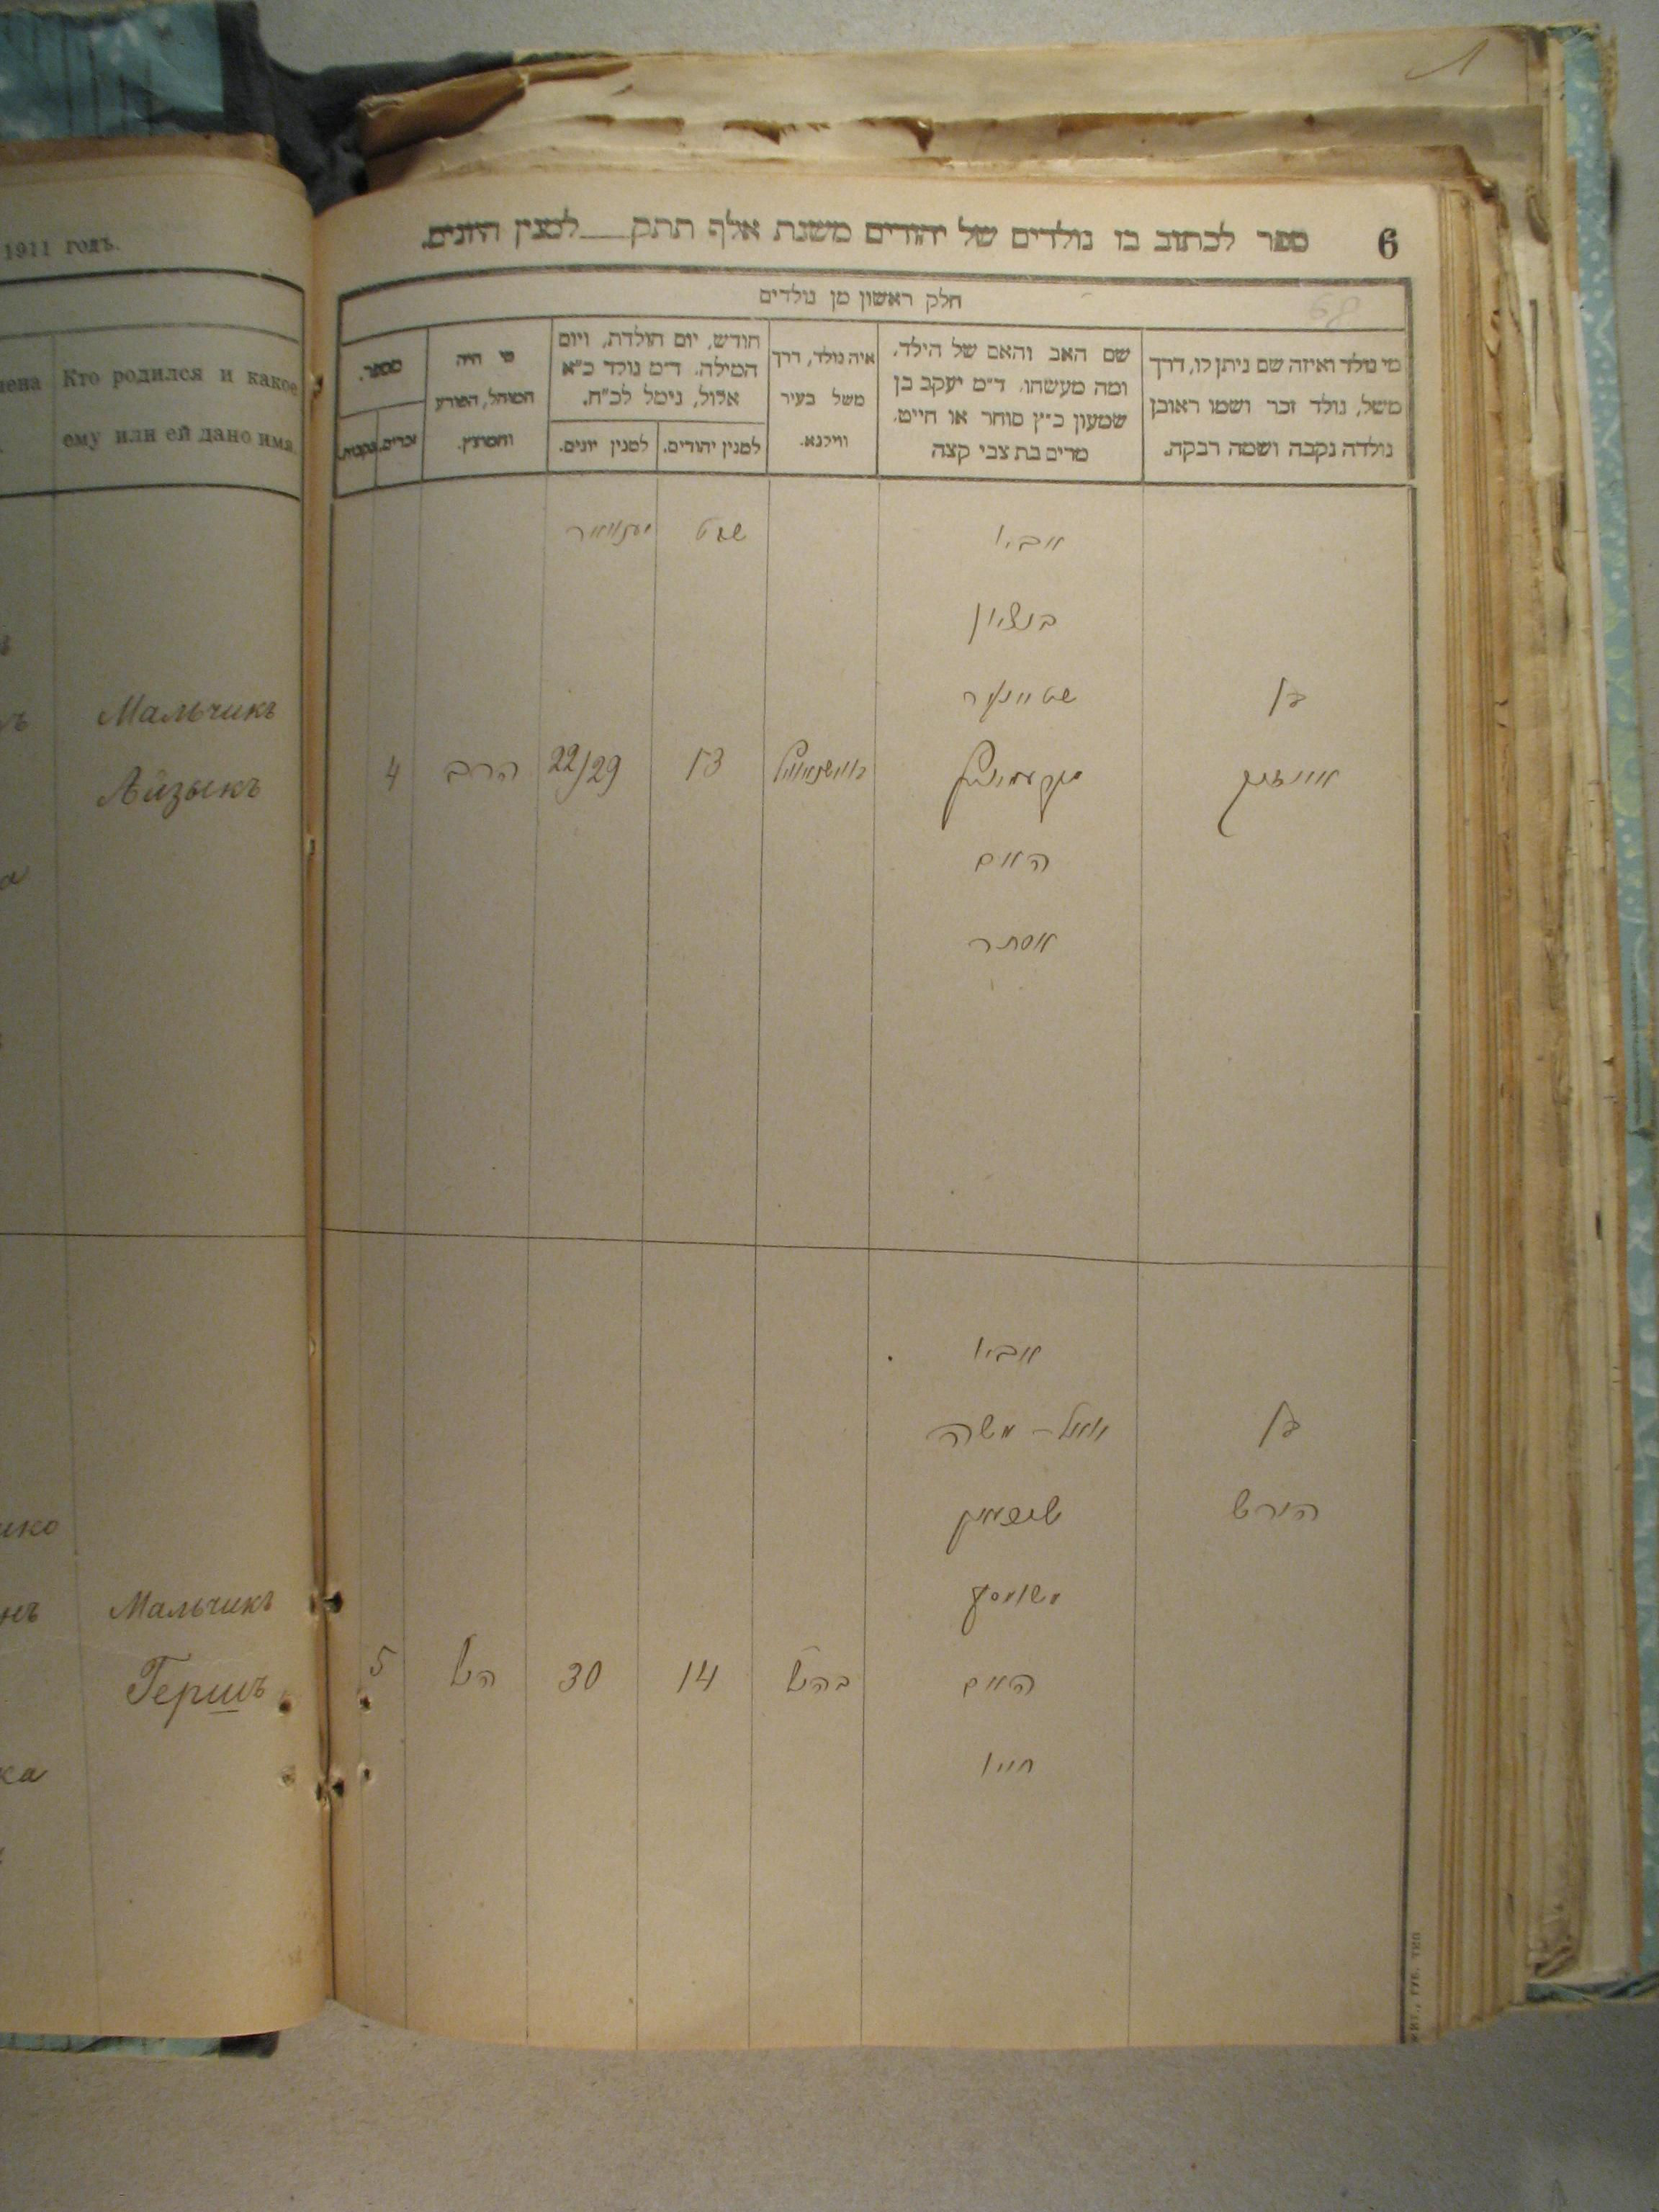 1911 годъ.
Кто родился и какое
ему или ей дано имя.
Мальчикъ
Айзыкъ
Мальчикъ
Гершъ
6
ספר לכתוב בו נולדים של יהודים משנת אלף תתק למנין היונים.
חלק ראשון מן נולדים
מי נולד ואיזה שם ניתן לו, דרך
משל, נולד זכר ושמו ראובן
נולדה נקבה ושמה רבקה.
שם האב והאם של הילד,
ומה מעשהו, ד״מ יעקב בן
שמעון כ״ץ סוחר או חייט,
מרים בת צבי קצה
איה נולד, דרך
משל בעיר
ווילנא.
חודש, יום הולדת, ויום
המילה, ד״מ נולד כ״א
אלול, נימל לכ״ח.
למנין יהודים.
למנין יונים.
מי היה
המוהל, הפורע
והמוצץ.
מספר.
זכרים.
נקבות.
אביו
שבט
בנציון
בן
אייזיק
13
22/29
הרב
4
האם
אסתר
אביו
בן
משה
הירש
האם
14
30
5